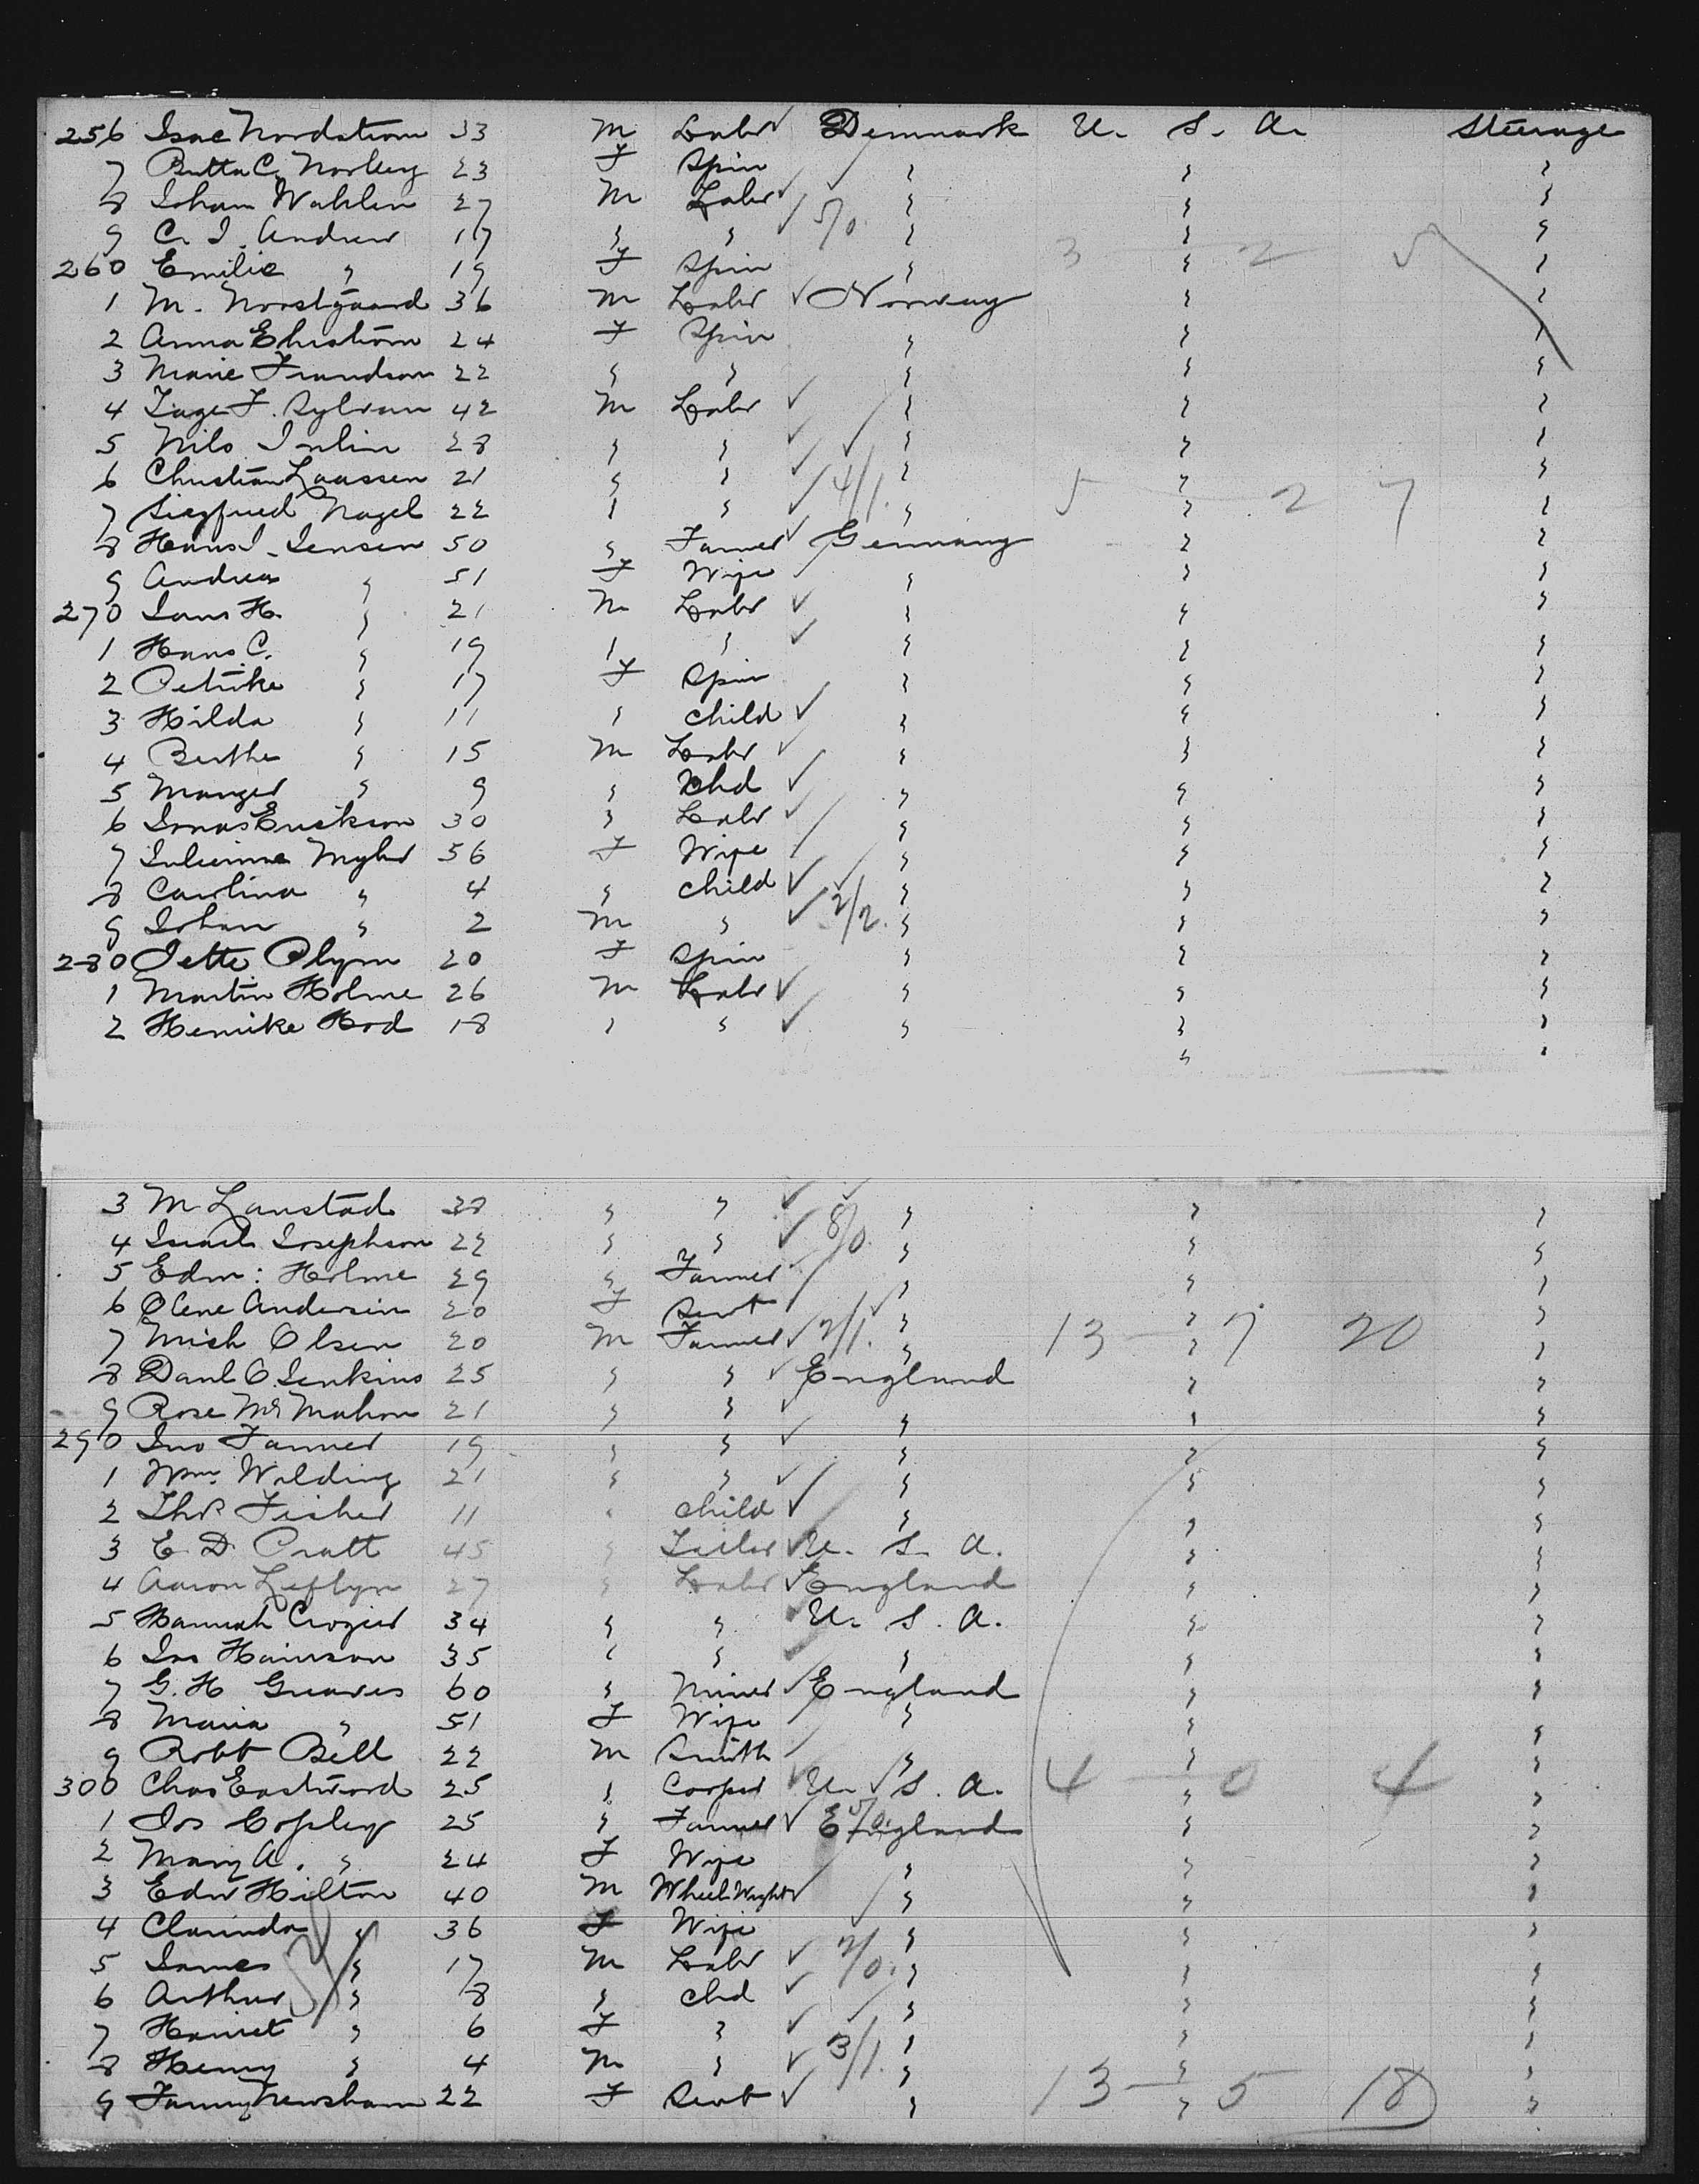 256 Isac Nordstrom 33 M Labr Denmark U. S. A. Steerage
7 Butta C. Norberg 23 F Spin " " "
8 Johan Wahlen 27 M Labr 5/0 " " "
9 C. J. Andrew 17 " " " " "
260 Emilie " 19 F Spin " " 3 — 2 5 "
1 M. Norstgaard 36 M Labr Norway " "
2 Anna Ehistrom 24 F Spin " " "
3 Marie Frandson 22 " " " " "
4 Tage F. Sylvan 42 M Labr " " "
5 Nils Inlin 28 " " " " "
6 Christian Laassen 21 " " 4/1. " " "
7 Siegfried Nagel 22 " " " " 5 — 2 7 "
8 Hans J. Jensen 50 " Farmer Germany " "
9 Andrea " 51 F Wife " " "
270 Jans H. " 21 M Labr " " "
1 Hans C. " 19 " " " " "
2 Petrike " 17 F Spin " " "
3 Hilda " 11 " child " " "
4 Berthe " 15 M Labr " " "
5 Manger " 9 " Chd " " "
6 Jonas Erickson 30 " Labr " " "
7 Julienne Myhr 56 F Wife " " "
8 Carolina " 4 " child " " "
9 Johan " 2 M " 2/2. " " "
280 Jette Plym 20 F Spin " " "
1 Martin Holme 26 M Labr " " "
2 Henrike Hod 18 " " " " "
" "
3 M Lanstad 28 " " " " "
4 Israel Josephson 22 " " 8/0. " " "
5 Edm: Holme 29 " Farmer " " "
6 Olene Andersin 20 F Servt " " "
7 Mich Olsen 20 M Farmer 2/1. " " 13 — 7 20 "
8 Danl O Jenkins 25 " " England " "
9 Rose McMahon 21 " " " " "
290 Jno Farmer 19 " " " " "
1 Wm. Wilding 21 " " " " "
2 Thos Fisher 11 " child " " "
3 E. D. Pratt 45 " U. S. A. " "
4 Aaron Leflyn 27 " Labr England " "
5 Hannah Crozier 34 " " U. S. A. " "
6 Jas Hairson 35 " " " " "
7 G. H Greaves 60 " Miner England " "
8 Maria " 51 F Wife " " "
9 Robt Bell 22 M Smith " " "
300 Chas Eastwood 25 " Cooper U. S. A. " 4 — 0 4 "
1 Jos Copley 25 " Farmer England " "
2 Mary A. " 24 F Wife " " "
3 Edw Hilton 40 M WheelWright " " "
4 Clarinda " 36 F Wife " " "
5 James " 17 M Labr 2/0. " " "
6 Arthur " 8 " chd " " "
7 Harriet " 6 F " " " "
8 Henry " 4 M " 3/1. " " "
9 Fanny Newsham 22 F Servt " " 13 — 5 18 "